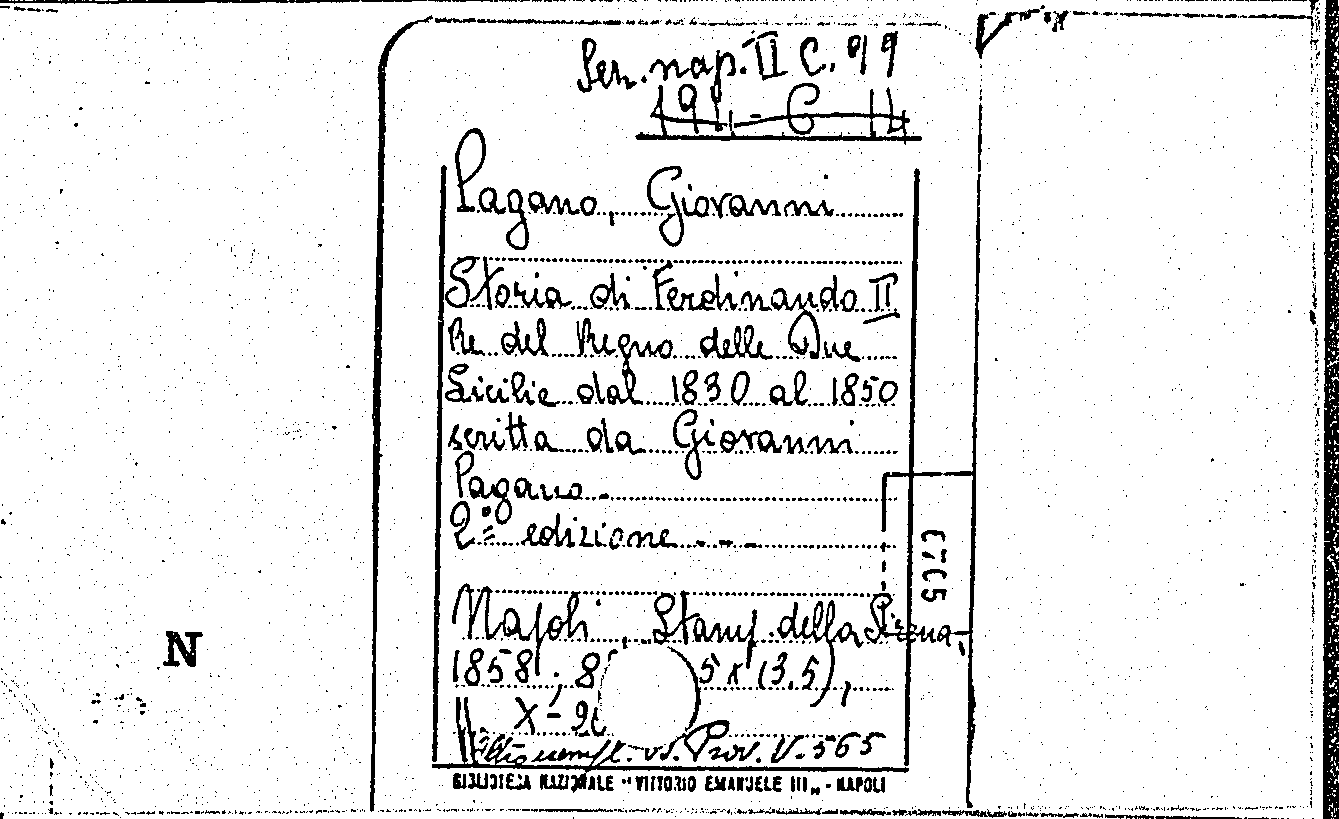 Sez. nap. II C. 99
191-C 14
Pagano, Giovanni
Storia di Ferdinando II
Re del Regno delle Due
Sicilie dal 1830 al 1850
scritta da Giovanni
Pagano.
2ª edizione ...
Napoli, Stamp. della Sirena,
1858; 8° 5 x 13.5),
X-2
Altro esempl. vs. Prov. V. 565
BIBLIOTECA NAZIONALE "VITTORIO EMANUELE III" - NAPOLI
N